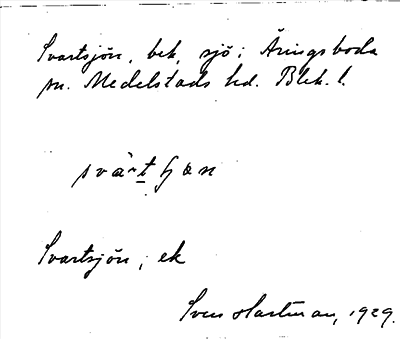 Svartsjön, bek, sjö i Åringsboda
sn. Medelstads hd. Blek. l.
Svartsjön, ek
Sven Hartman, 1929.